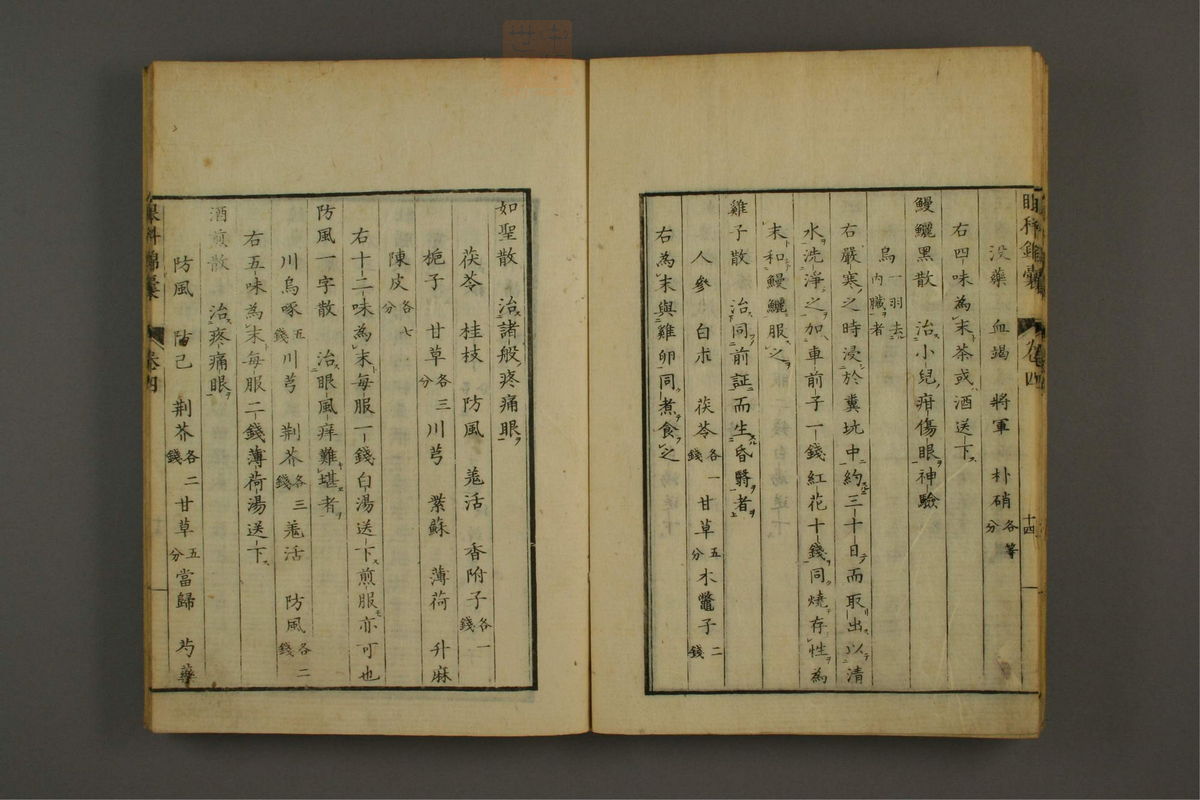 眼科錦囊 卷四 十四
沒藥 血竭 將軍 朴硝各等分
右四味為末茶或酒送下
鰻鱺黑散 治小兒疳傷眼神驗
烏一羽去內臟者
右嚴寒之時浸於糞坑中約三十日而取出以清
水洗淨之加車前子一錢紅花十錢同燒存性為
末和鰻鱺服之
雞子散 治同前証而生昏翳者
人參 白朮 茯苓各一錢 甘草五分 木鼈子二錢
右為末與雞卵同煮食之
如聖散 治諸般疼痛眼
茯苓 桂枝 防風 羗活 香附子各一錢
梔子 甘草各三分 川芎 紫蘇 薄荷 升麻
陳皮各七分
右十二味為末每服一錢白湯送下煎服亦可也
防風一字散 治眼風痒難堪者
川烏啄五錢 川芎 荆芥各三錢 羗活 防風各二錢
右五味為末每服二錢薄荷湯送下
酒煎散 治疼痛眼
防風 防己 荆芥各二錢 甘草五分 當歸 芍藥
眼科錦囊 卷四